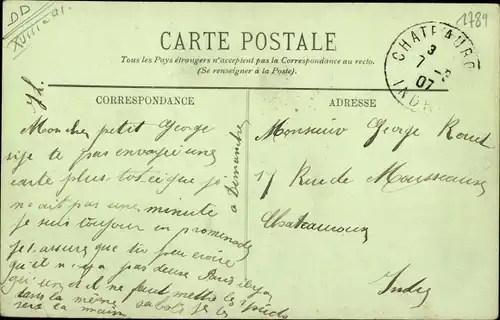 DD
XVIII-a1.
1789
CARTE POSTALE
Tous les Pays étrangers n'acceptent pas la Correspondance au recto.
(Se renseigner à la Poste).
CHATEAUROUX
3
7 - 2
07
INDRE
CORRESPONDANCE
ADRESSE
Mon cher petit George
si je te pas envoyé une
carte plus tot ce que je
ne ait pas une minute
je suis toujour en promenade
je t'assure que tu peu croire
qu'il n'y a pas deux Paris il y a
qu'un et il ne faut mettre les pieds
dans la même sabots je
sera la main
a Dimanche
Monsieur George Rouet
17 Rue de Mousseaux
Chateauroux
Indre